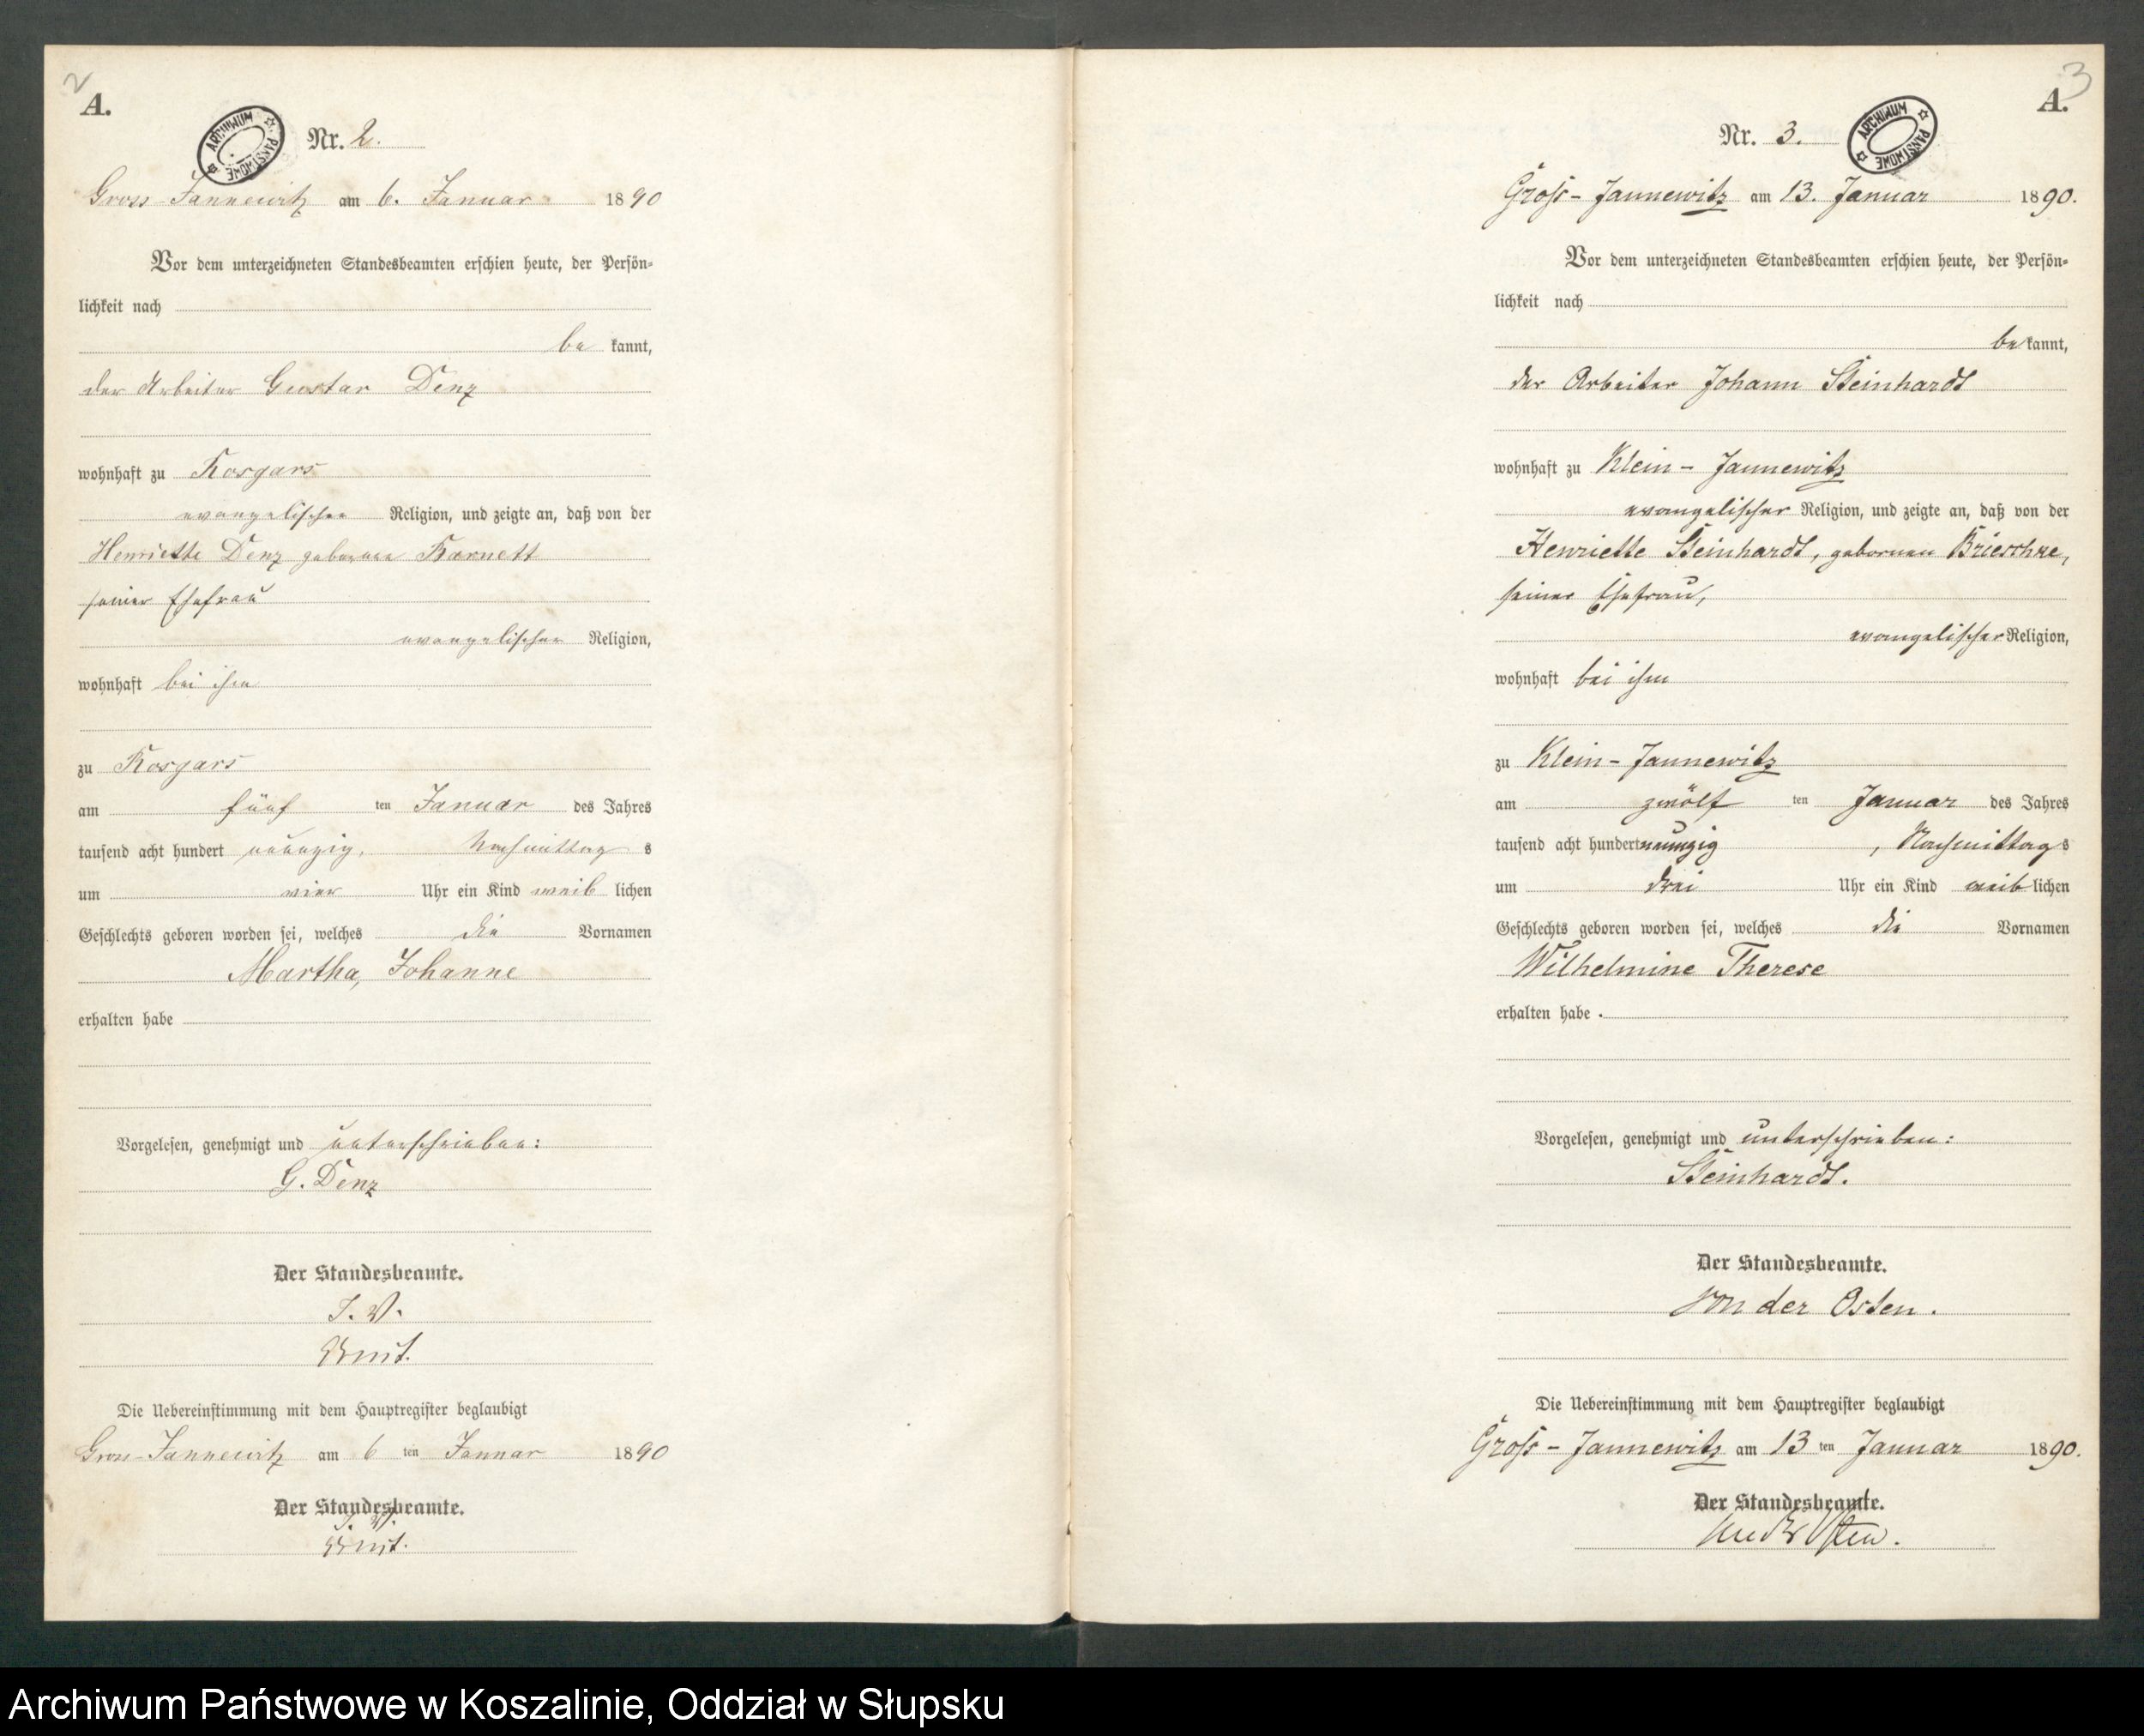 2
A.
ARCHIWUM PAŃSTWOWE
Nr. 2.
Gross-Jannewitz am 6. Januar 1890
Vor dem unterzeichneten Standesbeamten erschien heute, der Persön-
lichkeit nach
be kannt,
der Arbeiter Gustav Denz
wohnhaft zu Rosgars
evangelischer Religion, und zeigte an, daß von der
Henriette Denz geborene Barnett
seiner Ehefrau
evangelischer Religion,
wohnhaft bei ihm
zu Rosgars
am fünf ten Januar des Jahres
tausend acht hundert neunzig, Nachmittag s
um vier Uhr ein Kind weib lichen
Geschlechts geboren worden sei, welches die Vornamen
Martha, Johanne
erhalten habe
Vorgelesen, genehmigt und unterschrieben:
G. Denz
Der Standesbeamte.
I. V.
Die Uebereinstimmung mit dem Hauptregister beglaubigt
Gross-Jannewitz am 6 ten Januar 1890
Der Standesbeamte.
I. V.
3
A.
Nr. 3.
ARCHIWUM PAŃSTWOWE
Groß-Jannewitz am 13. Januar 1890.
Vor dem unterzeichneten Standesbeamten erschien heute, der Persön-
lichkeit nach
be kannt,
der Arbeiter Johann Steinhardt
wohnhaft zu Klein-Jannewitz
evangelischer Religion, und zeigte an, daß von der
Henriette Steinhardt, gebornen Brieschke,
seiner Ehefrau,
evangelischer Religion,
wohnhaft bei ihm
zu Klein-Jannewitz
am zwölf ten Januar des Jahres
tausend acht hundert neunzig, Nachmittag s
um drei Uhr ein Kind weib lichen
Geschlechts geboren worden sei, welches die Vornamen
Wilhelmine Therese
erhalten habe.
Vorgelesen, genehmigt und unterschrieben:
Steinhardt.
Der Standesbeamte.
Von der Osten.
Die Uebereinstimmung mit dem Hauptregister beglaubigt
Groß-Jannewitz am 13 ten Januar 1890.
Der Standesbeamte.
von der Osten.
Archiwum Państwowe w Koszalinie, Oddział w Słupsku